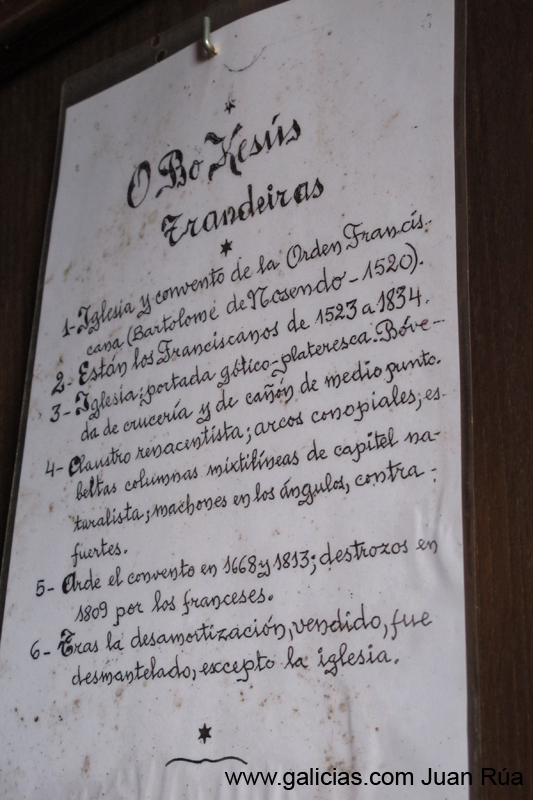 O Bo Xesús
Trandeiras
1- Iglesia y convento de la Orden Francis-
cana (Bartolomé de Nosendo - 1520).
2- Están los Franciscanos de 1523 a 1834.
3- Iglesia; portada gótico-plateresca. Bóve-
da de crucería y de cañón de medio punto.
4- Claustro renacentista; arcos conopiales; es-
beltas columnas mixtilíneas de capitel na-
turalista; machones en los ángulos, contra-
fuertes.
5- Arde el convento en 1668 y 1813; destrozos en
1809 por los franceses.
6- Tras la desamortización, vendido, fue
desmantelado, excepto la iglesia.
www.galicias.com Juan Rúa